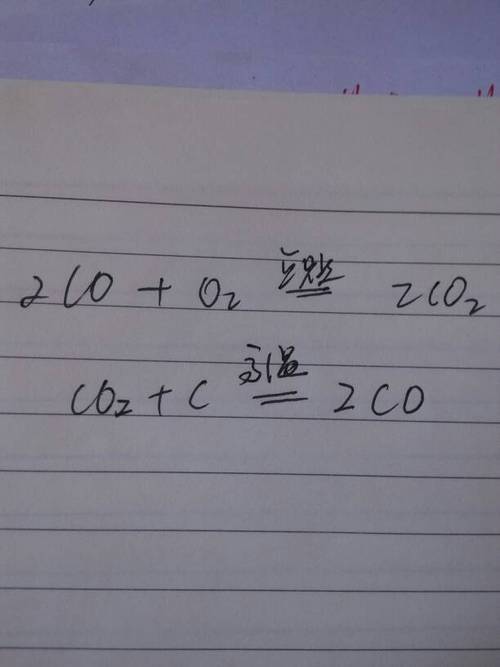 2CO + O₂ 点燃 == 2CO₂
CO₂ + C 高温 == 2CO